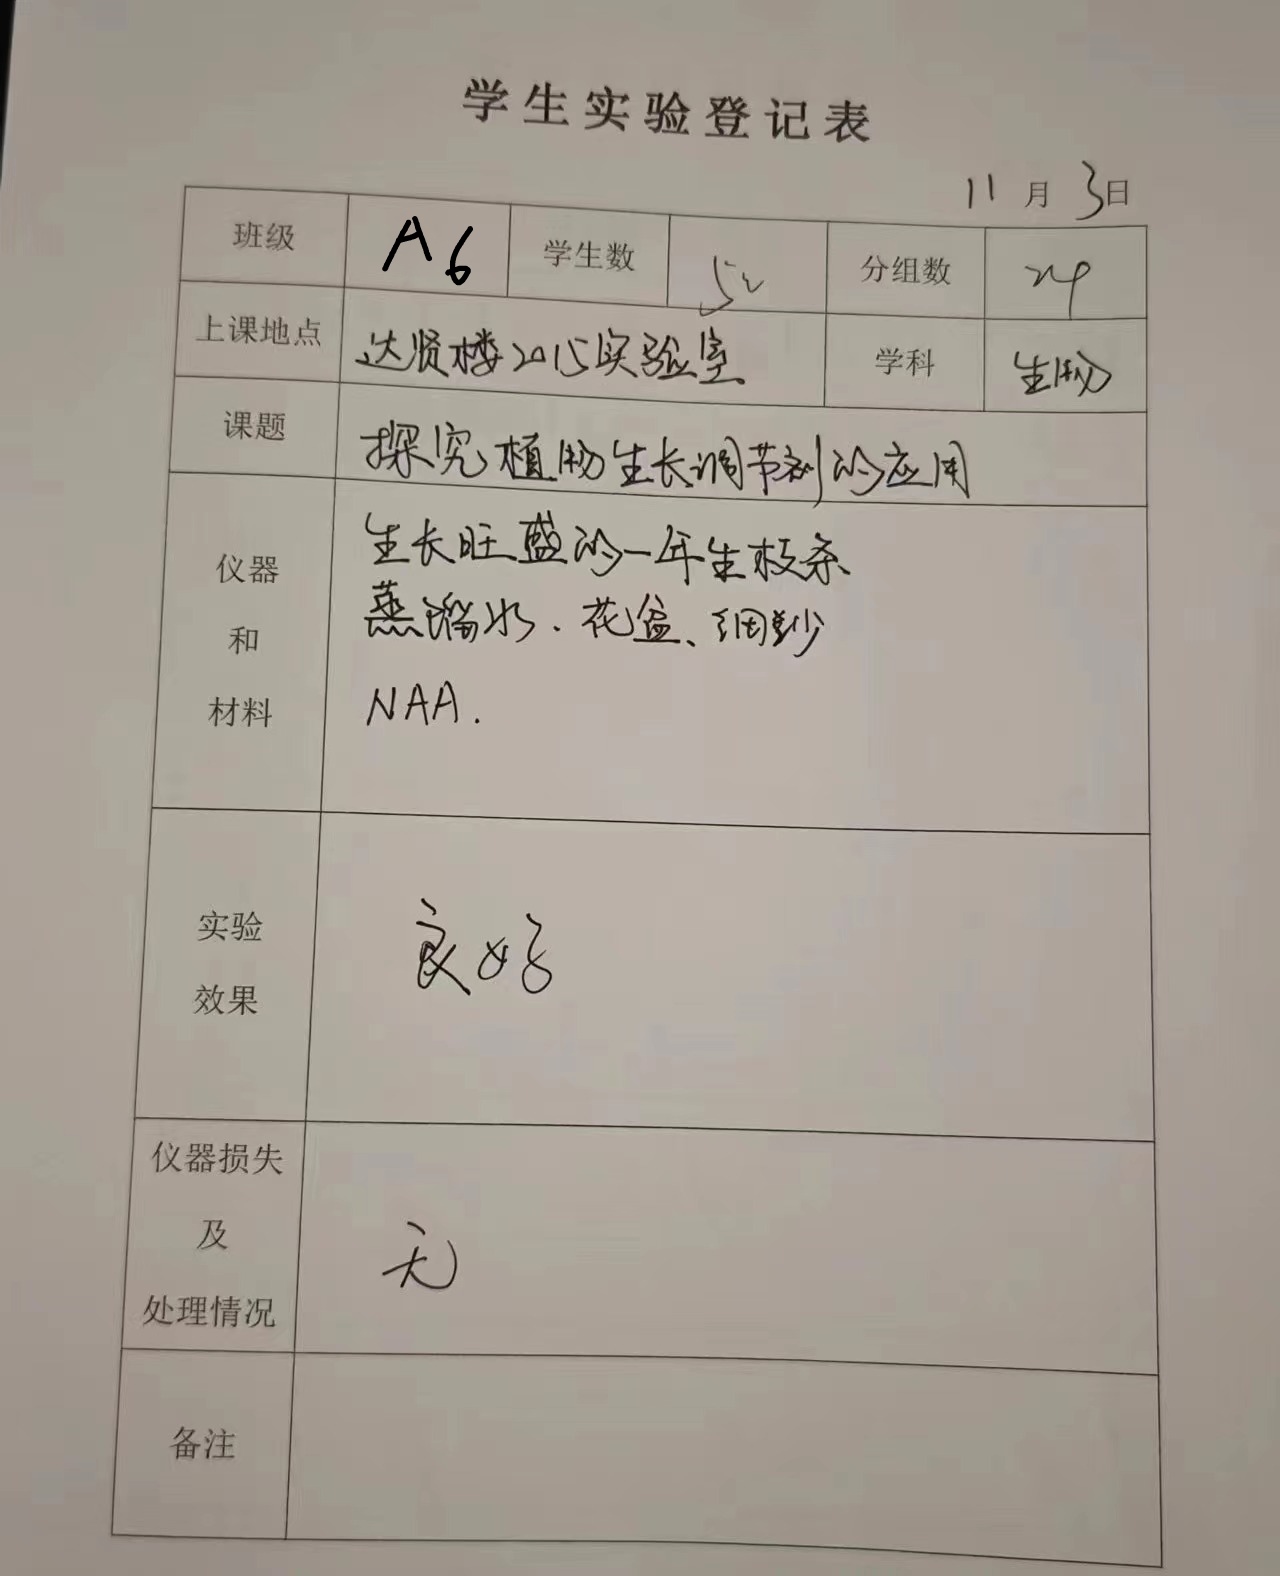 学生实验登记表
11月3日
班级 A6 学生数 52 分组数 24
上课地点 达贤楼2015实验室 学科 生物
课题 探究植物生长调节剂的应用
仪器
和
材料
生长旺盛的一年生枝条
蒸馏水.花盆、细沙
NAA.
实验
效果
良好
仪器损失
及
处理情况
无
备注